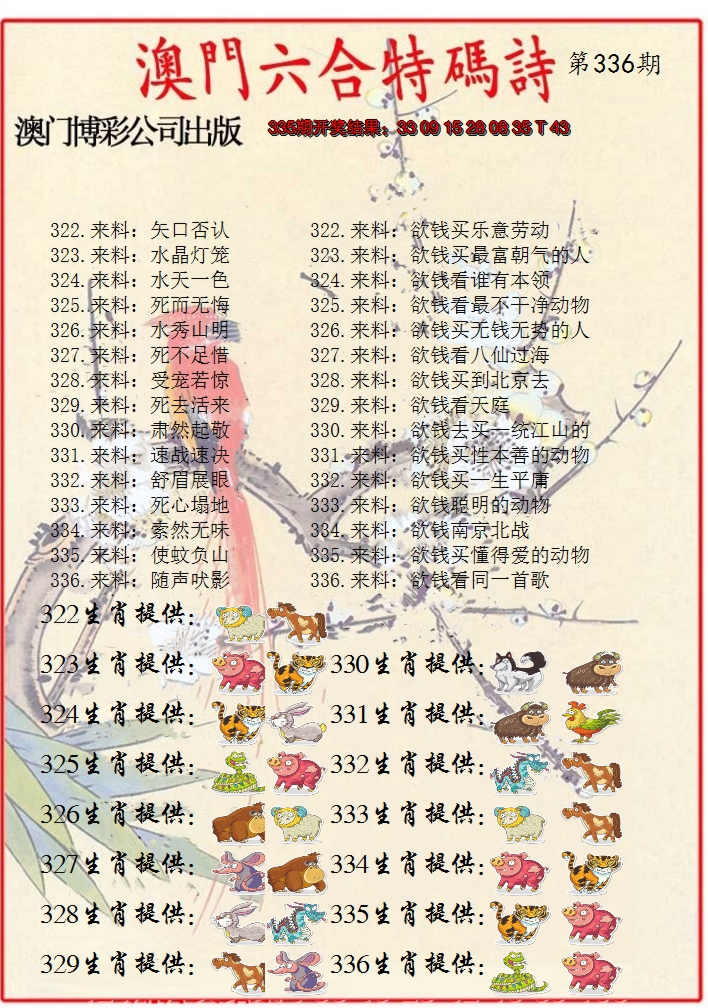 澳門六合特碼詩 第336期
澳门博彩公司出版 335期开奖结果：33 09 15 28 08 35 T 43
322.来料：矢口否认 322.来料：欲钱买乐意劳动
323.来料：水晶灯笼 323.来料：欲钱买最富朝气的人
324.来料：水天一色 324.来料：欲钱看谁有本领
325.来料：死而无悔 325.来料：欲钱看最不干净动物
326.来料：水秀山明 326.来料：欲钱买无钱无势的人
327.来料：死不足惜 327.来料：欲钱看八仙过海
328.来料：受宠若惊 328.来料：欲钱买到北京去
329.来料：死去活来 329.来料：欲钱看天庭
330.来料：肃然起敬 330.来料：欲钱去买一统江山的
331.来料：速战速决 331.来料：欲钱买性本善的动物
332.来料：舒眉展眼 332.来料：欲钱买一生平庸
333.来料：死心塌地 333.来料：欲钱聪明的动物
334.来料：索然无味 334.来料：欲钱南京北战
335.来料：使蚊负山 335.来料：欲钱买懂得爱的动物
336.来料：随声吠影 336.来料：欲钱看同一首歌
322生肖提供：
323生肖提供： 330生肖提供：
324生肖提供： 331生肖提供：
325生肖提供： 332生肖提供：
326生肖提供： 333生肖提供：
327生肖提供： 334生肖提供：
328生肖提供： 335生肖提供：
329生肖提供： 336生肖提供：